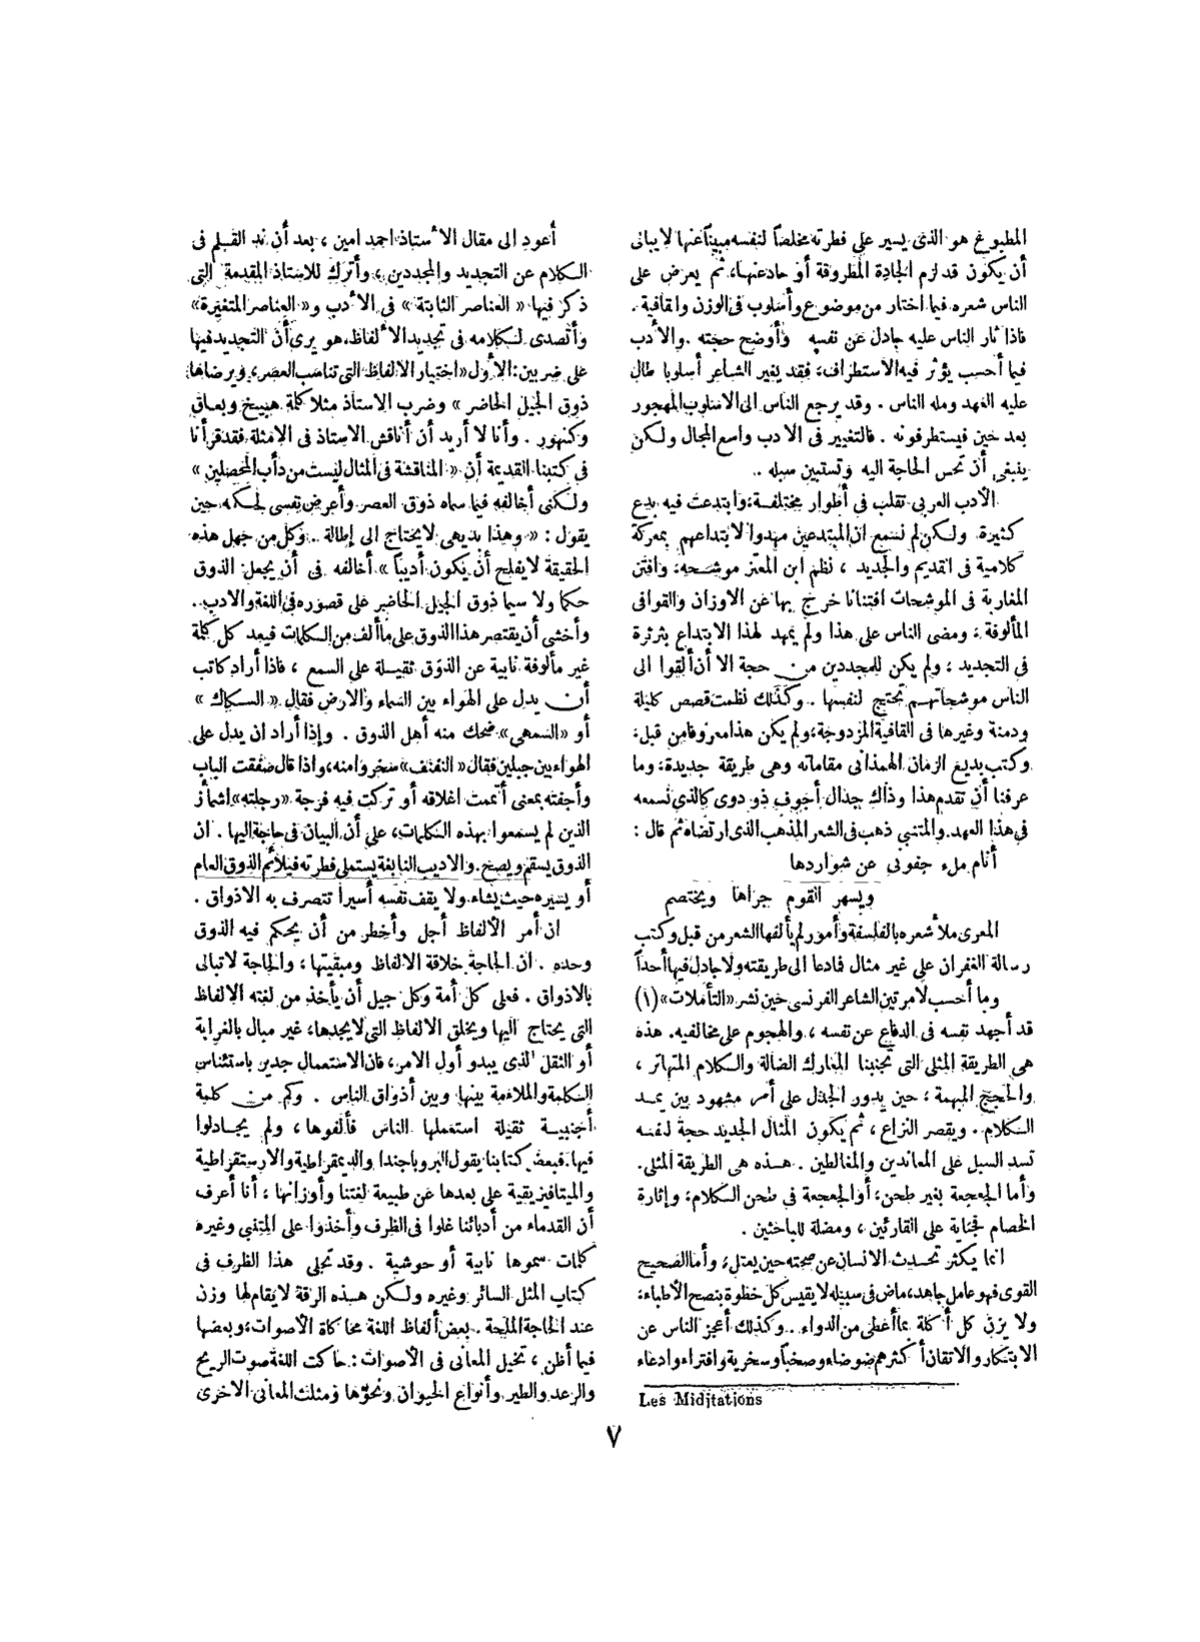 المطبوع هو الذى يسير على فطرته مخلصاً لنفسه مبيناً عنها لا يبالى
أن يكون قد لزم الجادة المطروقة أو حاد عنها، ثم يعرض على
الناس شعره فيما اختار من موضوع وأسلوب فى الوزن والقافية .
فاذا ثار الناس عليه جادل عن نفسه وأوضح حجته . والأدب
فيما أحسب يؤثر فيه الاستطراف، فقد يغير الشاعر أسلوبا طال
عليه العهد ومله الناس . وقد يرجع الناس الى الاسلوب المهجور
بعد حين فيستطرفونه . فالتغيير فى الادب واسع المجال ولكن
ينبغى أن تحس الحاجة اليه وتستبين سبله ..
الأدب العربى تقلب فى أطوار مختلفة، وابتدعت فيه بدع
كثيرة ولكن لم نسمع ان المبتدعين مهدوا لابتداعهم بمعركة
كلامية فى القديم والجديد ، نظم ابن المعتز موشحه، وافتن
المغاربة فى الموشحات افتنانا خرج بها عن الاوزان والقوافى
المألوفة ، ومضى الناس على هذا ولم يمهد لهذا الابتداع بثرثرة
فى التجديد ، ولم يكن للمجددين من حجة الا أن ألقوا الى
الناس موشحاتهم تحتج لنفسها . وكذلك نظمت قصص كليلة
ودمنة وغيرها فى القافية المزدوجة، ولم يكن هذا معروفا من قبل،
وكتب بديع الزمان الهمذانى مقاماته وهى طريقة جديدة، وما
عرفنا أن تقدم هذا وذاك جدال أجوف ذو دوى كالذى نسمعه
فى هذا العهد . والمتنبى ذهب فى الشعر المذهب الذى ارتضاه ثم قال :
أنام ملء جفونى عن شواردها
ويسهر القوم جراها ويختصم
المعرى ملأ شعره بالفلسفة وأمور لم يألفها الشعر من قبل وكتب
رسالة الغفران على غير مثال فما دعا الى طريقته ولا جادل فيها أحداً
وما أحسب لامرتين الشاعر الفرنسى حين نشر «التأملات» (١)
قد أجهد نفسه فى الدفاع عن نفسه ، والهجوم على مخالفيه. هذه
هى الطريقة المثلى التى تجنبنا المعارك الضالة والكلام المتهاتر ،
والحجج المبهمة ، حين يدور الجدل على أمر مشهود بين يمد
الكلام . ويقصر النزاع ، ثم يكون المثال الجديد حجة لنفسه
تسد السبل على المعاندين والمغالطين . هذه هى الطريقة المثلى.
وأما الجعجعة بغير طحن، أو الجعجعة فى طحن الكلام، وإثارة
الخصام فجناية على القارئين ، ومضلة للباحثين .
انما يكثر تحدث الانسان عن صحته حين يعتل، وأما الصحيح
القوى فهو عامل جاهد، ماض فى سبيله لا يقيس كل خطوة بنصح الأطباء،
ولا يزن كل أكلة بما أعطى من الدواء .. وكذلك أعجز الناس عن
الابتكار والاتقان أكثرهم ضوضاء وصخباً وسخرية وافتراء وادعاء
Les Miditations
أعود الى مقال الأستاذ احمد امين ، بعد أن ند القلم فى
الكلام عن التجديد والمجددين ، وأترك للاستاذ المقدمة التى
ذكر فيها « العناصر الثابتة » فى الأدب و« العناصر المتغيرة»
وأتصدى لكلامه فى تجديد الألفاظ، هو يرى أن التجديد فيها
على ضربين: الأول «اختيار الالفاظ التى تناسب العصر، ويرضاها
ذوق الجيل الحاضر » وضرب الاستاذ مثلا كلمة هبيخ وبعاق
وكنهور . وأنا لا أريد أن أناقش الاستاذ فى الامثلة فقد قرأنا
فى كتبنا القديمة أن « المناقشة فى المثال ليست من دأب المحصلين »
ولكنى أخالفه فيما سماه ذوق العصر وأعرض نفسى لحكمه حين
يقول : « وهذا بديهى لا يحتاج الى إطالة .. وكل من جهل هذه
الحقيقة لا يفلح أن يكون أديباً » أخالفه فى أن يجعل الذوق
حكما ولا سيما ذوق الجيل الحاضر على قصوره فى اللغة والادب..
وأخشى أن يقتصر هذا الذوق على ما ألف من الكلمات فيعد كل كلمة
غير مألوفة نابية عن الذوق ثقيلة على السمع ، فاذا أراد كاتب
أن يدل على الهواء بين السماء والارض فقال « السكاك »
أو «السمهى» ضحك منه أهل الذوق . وإذا أراد ان يدل على
الهواء بين جبلين فقال « النفنف» سخروا منه، واذا قال صفقت الباب
وأجفته بمعنى أتممت اغلاقه أو تركت فيه فرجة «رجلته» اشمأز
الذين لم يسمعوا بهذه الكلمات، على أن البيان فى حاجة إليها . ان
الذوق يسقم ويصح . والاديب النابغة يستملى فطرته فيلائم الذوق العام
أو يسيره حيث يشاء . ولا يقف نفسه أسيراً تتصرف به الاذواق .
ان أمر الألفاظ أجل وأخطر من أن يحكم فيه الذوق
وحده . ان الحاجة خلاقة الالفاظ ومبقيتها ، والحاجة لا تبالى
بالاذواق . فعلى كل أمة وكل جيل أن يأخذ من لغته الالفاظ
التى يحتاج اليها ويخلق الالفاظ التى لا يجدها، غير مبال بالغرابة
أو الثقل الذى يبدو أول الامر، فان الاستعمال جدير باستئناس
الكلمة والملاءمة بينها وبين أذواق الناس . وكم من كلمة
أجنبية ثقيلة استعملها الناس فألفوها ، ولم يجادلوا
فيها. فبعض كتابنا يقول البروباجندا والديمقراطية والارستقراطية
والميتافيزيقية على بعدها عن طبيعة لغتنا وأوزانها ، أنا أعرف
أن القدماء من أدبائنا غلوا فى الظرف وأخذوا على المتنبى وغيره
كلمات سموها نابية أو حوشية . وقد تجلى هذا الظرف فى
كتاب المثل السائر وغيره ولكن هذه الرقة لا يقام لها وزن
عند الحاجة الملحة . بعض ألفاظ اللغة محاكاة الأصوات، وبعضها
فيما أظن ، تخيل المعانى فى الأصوات : حاكت اللغة صوت الريح
والرعد والطير وأنواع الحيوان ونحوها ومثلت المعانى الاخرى
٧